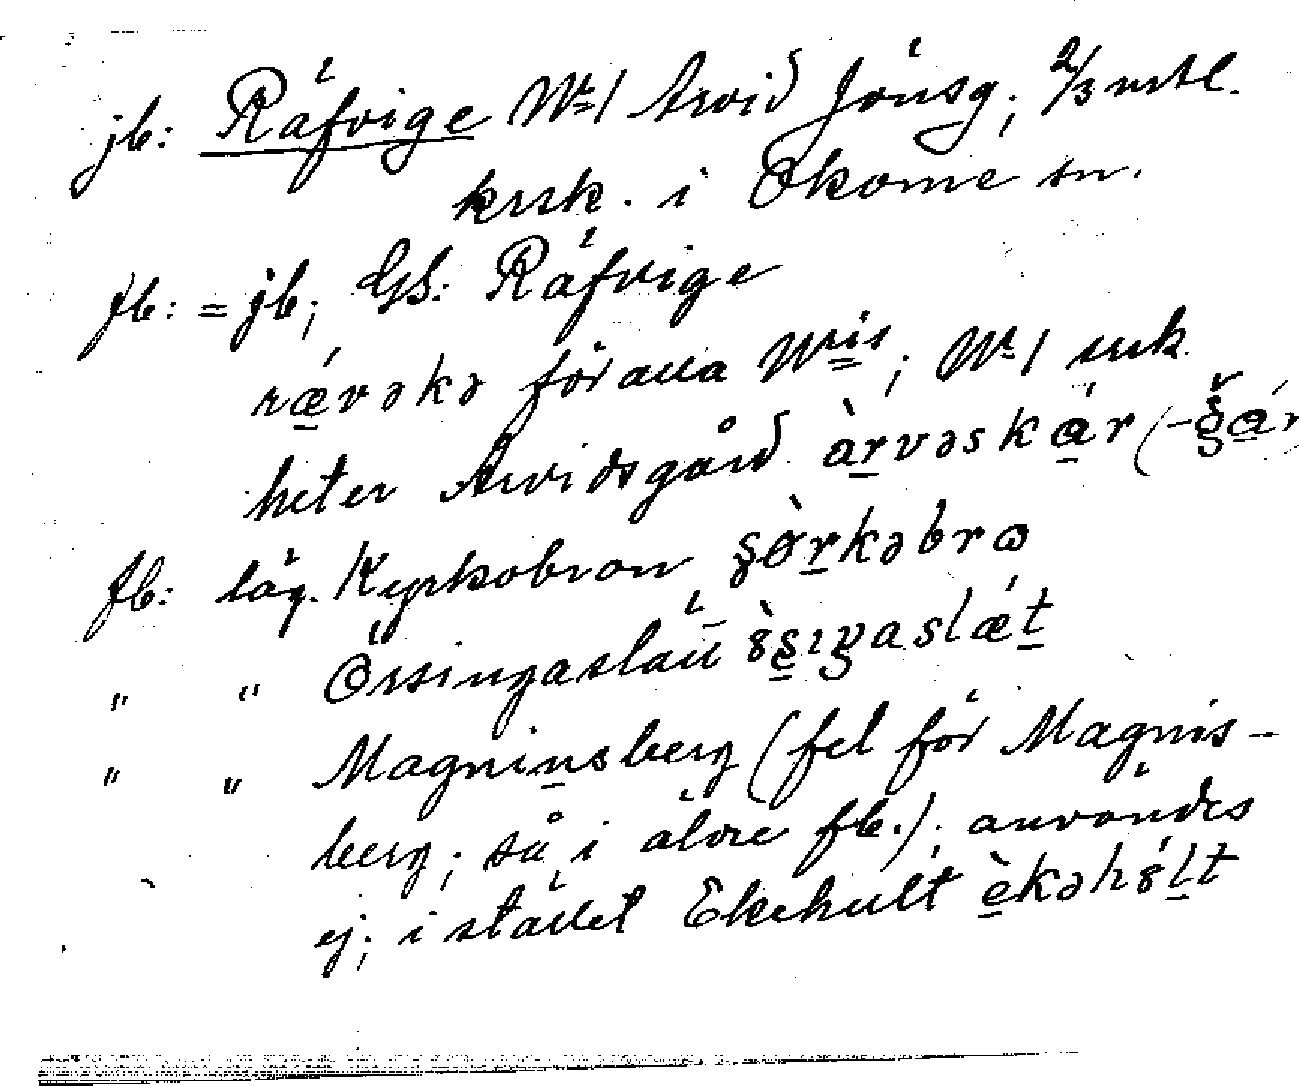 jb: Räfvige Nr 1 Arvid Jönsg; 2/3 mtl.
krsk. i Okome sn.
fb: = jb; GS: Räfvige
rǽvəkə för alla Nris; Nr 1 ensk.
heter Arvidsgård àrvəskár (-
fb: läg. Kyrkobron
" " Örsingaslätt
" " Magninsberg (fel för Magnis-
berg; så i äldre fb.); användes
ej; i stället Ekehult èkəhólt